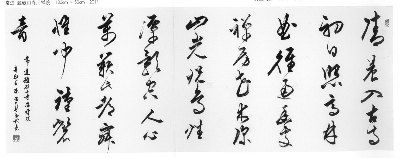 135cm × 53cm 2011
清晨入古寺
初日照高林
曲徑通幽處
禅房花木深
山光悦鳥性
潭影空人心
萬籟此都寂
鐘磬
音